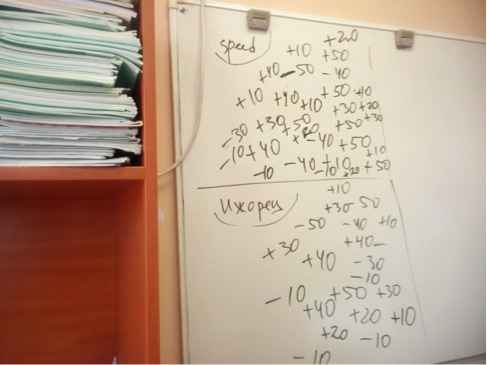 speed
+20
+10 +50
+40 -50 -40
+50 +10
+10 +40 +10 +30 +20
-30 +30 +50 +50 +30
-10 +40 -40 +50
+10
-10 -40 +10 -10 +20 +50
Ижорец
+10
+30 -50
-50 -40 +10
+30 +40
+40 -30
-10
-10 +50 +30
+40 +20 +10
+20 -10
-10